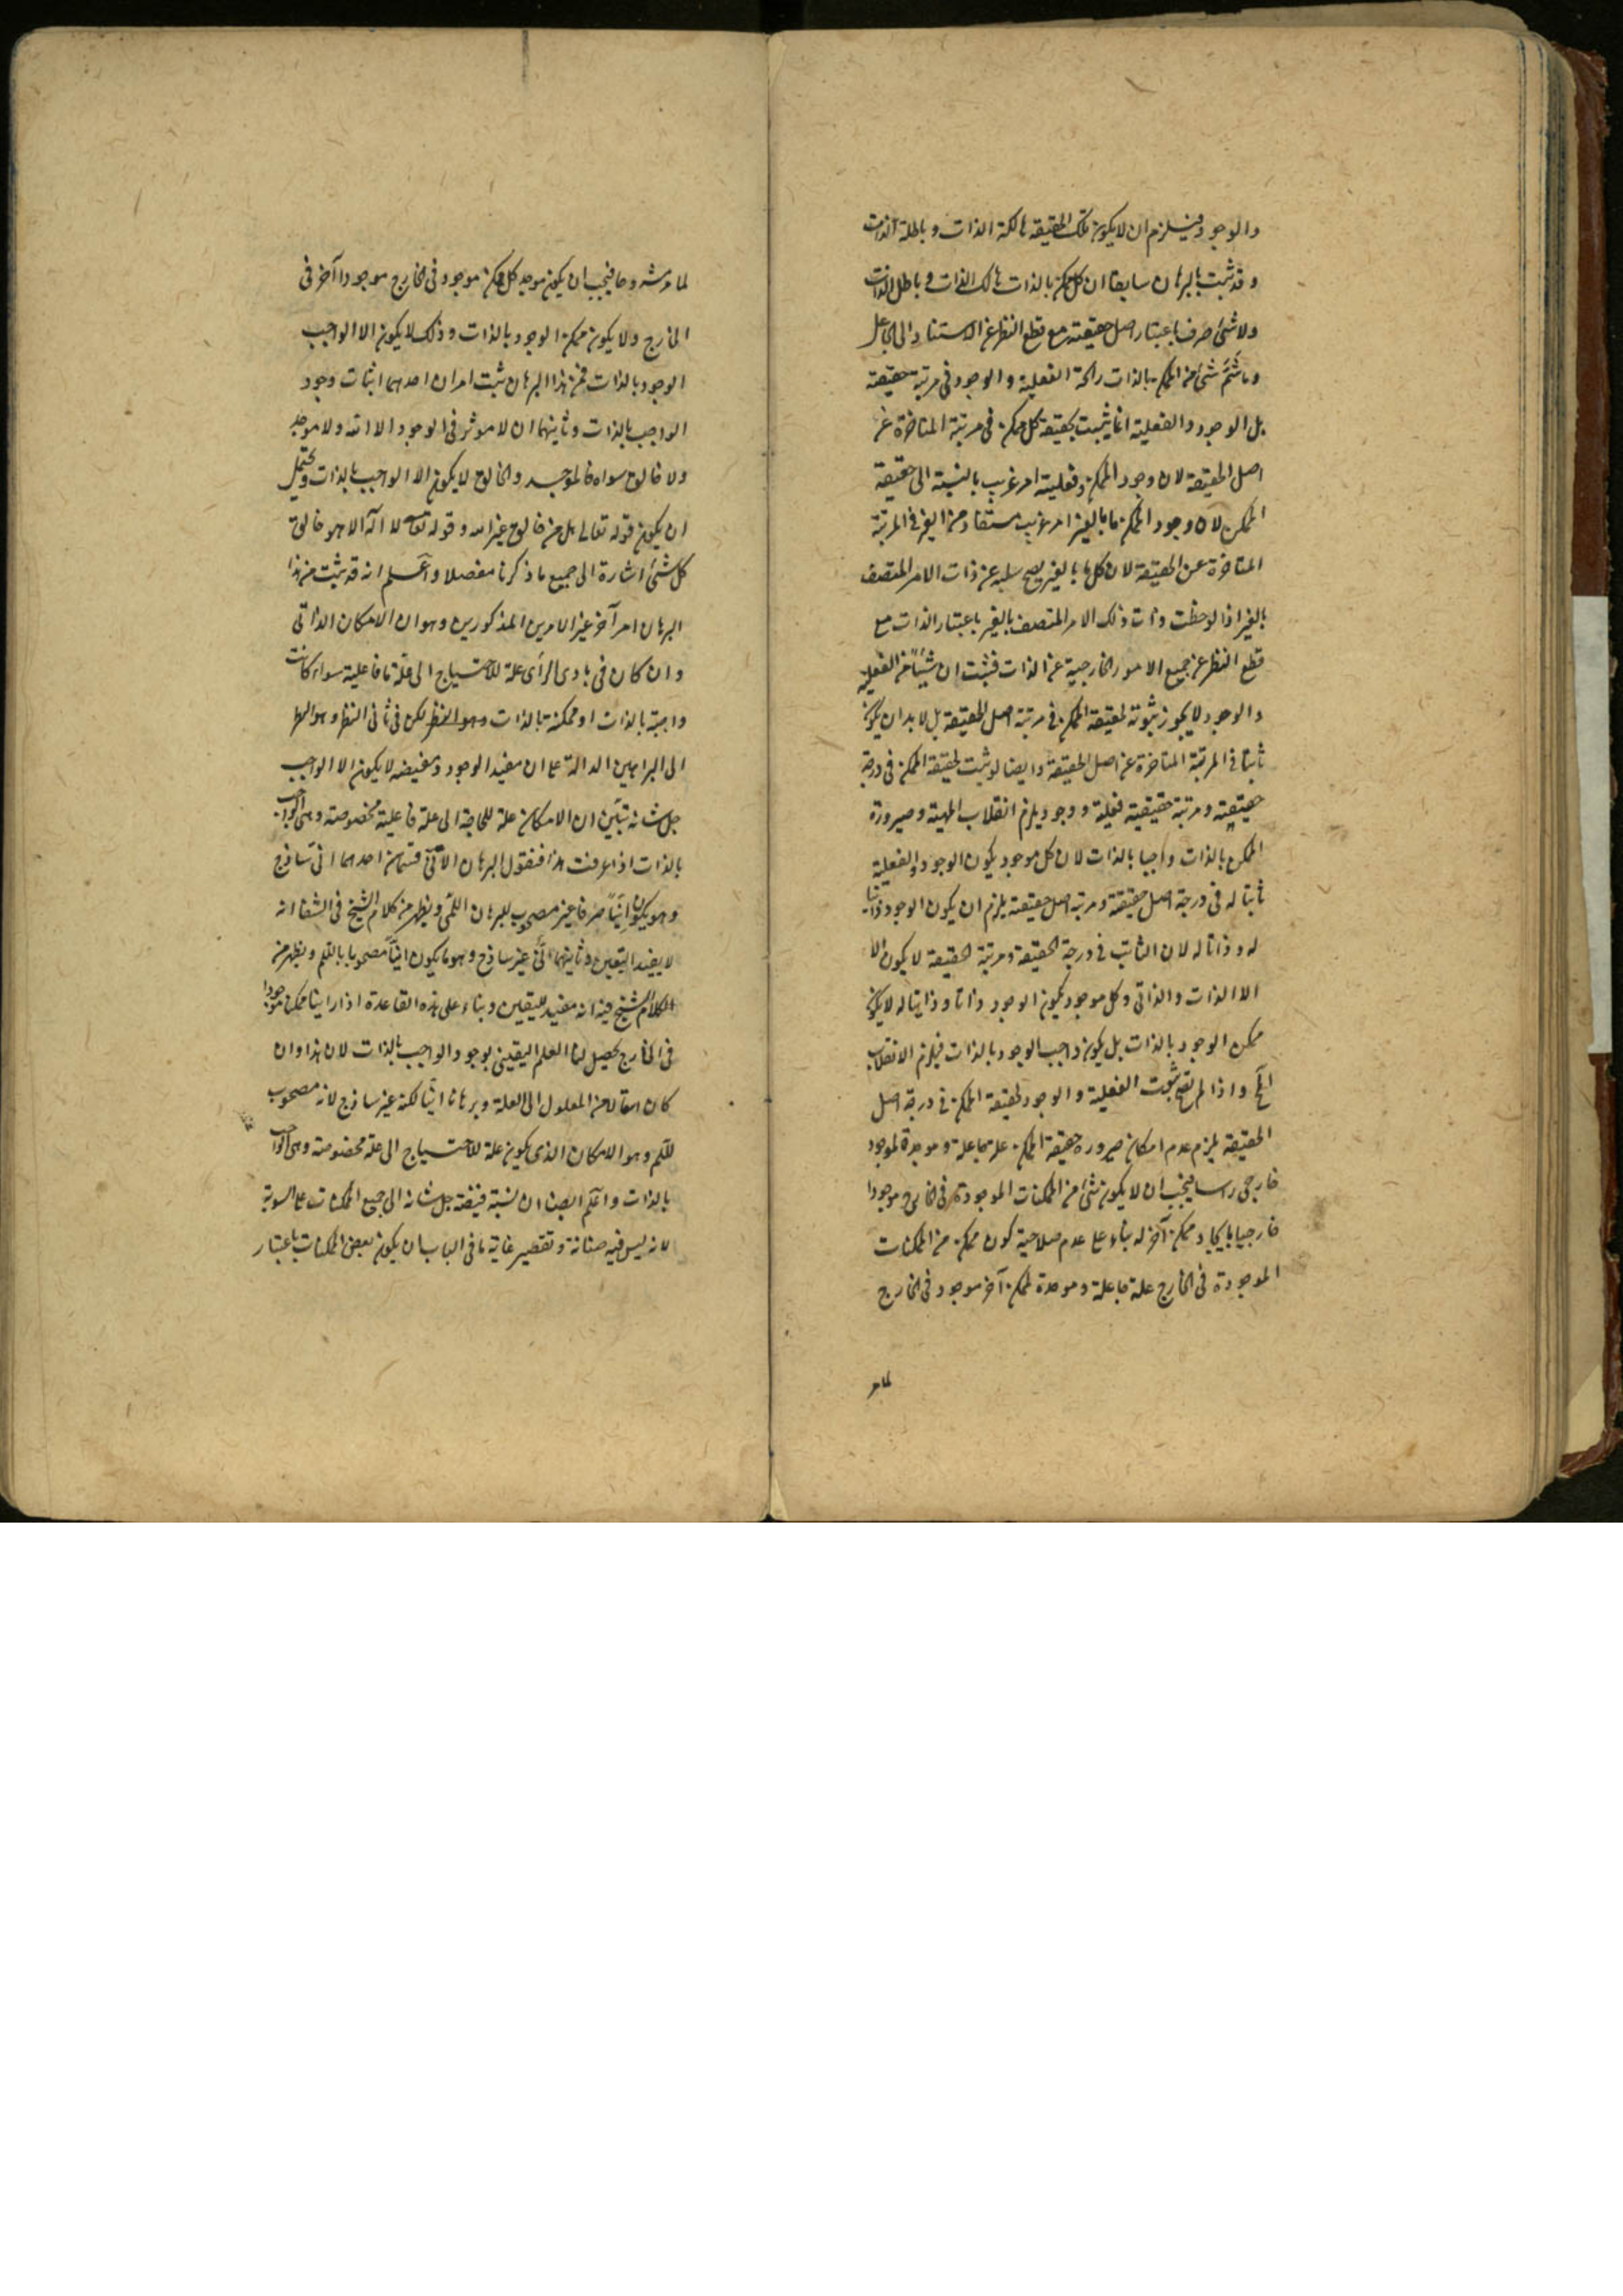 والوجود فيلزم ان لا يكون تلك الحقيقة هالكة الذات وباطلة الذات
وقد ثبت بالبرهان سابقا ان كل ممكن بالذات هالك الذات وباطل الذات
ولا شئ صرف باعتبار اصل حقيقته مع قطع النظر عن الاستناد الى الجاعل
وما شَمَّ شئ من الممكن بالذات رائحة الفعلية والوجود فى مرتبة حقيقته
بل الوجود والفعلية انما يثبت لحقيقة كل ممكن فى مرتبة المتاخرة عن
اصل الحقيقة لان وجود الممكن وفعليته امر غريب بالنسبة الى حقيقة
الممكن لان وجود الممكن ما بالغير امر غريب مستفاد من الغير فى المرتبة
المتاخرة عن الحقيقة لان كل ما بالغير يصح سلبه عن ذات الامر المتصف
بالغير اذا لوحظت ذات ذلك الامر المتصف بالغير باعتبار الذات مع
قطع النظر عن جميع الامور الخارجية عن الذات فثبت ان شيئًا من الفعلية
والوجود لا يجوز ثبوته لحقيقة الممكن فى مرتبة اصل الحقيقة بل لا بد ان يكون
ثابتا فى المرتبة المتاخرة عن اصل الحقيقة وايضا لو ثبت لحقيقة الممكن فى درجة
حقيقته ومرتبة حقيقية فعلية ووجود يلزم انقلاب المهية وصيرورة
الممكن بالذات واجبا بالذات لان كل موجود يكون الوجود والفعلية
ثابتا له فى درجة اصل حقيقته ومرتبة اصل حقيقته يلزم ان يكون الوجود ذاتيا
له وذاتا له لان الثابت فى درجة الحقيقة ومرتبة الحقيقة لا يكون الا
الا الذات والذاتى وكل موجود يكون الوجود ذاتا وذاتيا له لا يكون
ممكن الوجود بالذات بل يكون واجب الوجود بالذات فيلزم الانقلاب
الخ واذا لم يصح ثبوت الفعلية والوجود لحقيقة الممكن فى درجة اصل
الحقيقة يلزم عدم امكان صيرورة حقيقة الممكن علة جاعلة وموجدة لموجود
خارجى راسا فيجب ان لا يكون شئ من الممكنات الموجودة فى الخارج موجودا
خارجيا بايجاد ممكن آخر له بناء على عدم صلاحية كون ممكن من الممكنات
الموجودة فى الخارج علة جاعلة وموجدة لممكن آخر موجود فى الخارج
لما مر
لما مر مشروحا فيجب ان يكون موجد كل ممكن موجود فى الخارج موجودا آخر فى
الخارج ولا يكون ممكن الوجود بالذات وذلك لا يكون الا الواجب
الوجود بالذات فمن هذا البرهان ثبت امران احدهما اثبات وجود
الواجب بالذات وثانيهما ان لا موثر فى الوجود الا الله ولا موجد
ولا خالق سواه فالموجد والخالق لا يكون الا الواجب بالذات ويحتمل
ان يكون قوله تعالى هل من خالق غير الله وقوله تعالى لا اله الا هو خالق
كل شئ اشارة الى جميع ما ذكرنا مفصلا واعلم انه قد يثبت من هذا
البرهان امر آخر غير الامرين المذكورين وهو ان الامكان الذاتى
وان كان فى بادى الرأى علة للاحتياج الى علة ما فاعلية سواء كانت
واجبة بالذات او ممكنة بالذات وهو النظر لكن فى ثانى النظر وهو النظر
الى البراهين الدالة على ان مفيد الوجود ومفيضه لا يكون الا الواجب
جل شانه تبين ان الامكان علة للحاجة الى علة فاعلية مخصوصة وهى الواجب
بالذات اذا عرفت هذا فنقول البرهان الانّى قسمان احدهما انى ساذج
وهو يكون انيًّا صرفا غير مصحوب للبرهان اللمّى ويظهر من كلام الشيخ فى الشفا انه
لا يفيد اليقين وثانيهما انّى غير ساذج وهو ما يكون انيًّا مصحوبا باللم ويظهر من
الكلام الشيخ فيه انه مفيد لليقين وبناء على هذه القاعدة اذا راينا ممكنا موجودا
فى الخارج يحصل لنا العلم اليقينى بوجود الواجب بالذات لان هذا وان
كان انتقالا من المعلول الى العلة وبرهانا انيًّا لكنه غير ساذج لانه مصحوب
للّم وهو الامكان الذى يكون علة للاحتياج الى علة مخصوصة وهى الواجب
بالذات واعلم ايضا ان نسبة فيضه جل شانه الى جميع الممكنات على السوية
لانه ليس فيه ضنانة وتقصير غاية ما فى الباب ان يكون بعض الممكنات باعتبار